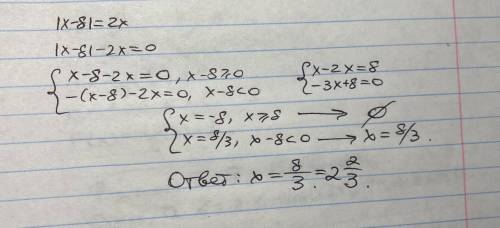 |x-8|=2x
|x-8|-2x=0
{ x-8-2x=0, x-8≥0
-(x-8)-2x=0, x-8<0
{ x-2x=8
-3x+8=0
{ x=-8, x≥8 → ∅
x=8/3, x-8<0 → x=8/3.
Ответ: x=8/3=2 2/3.